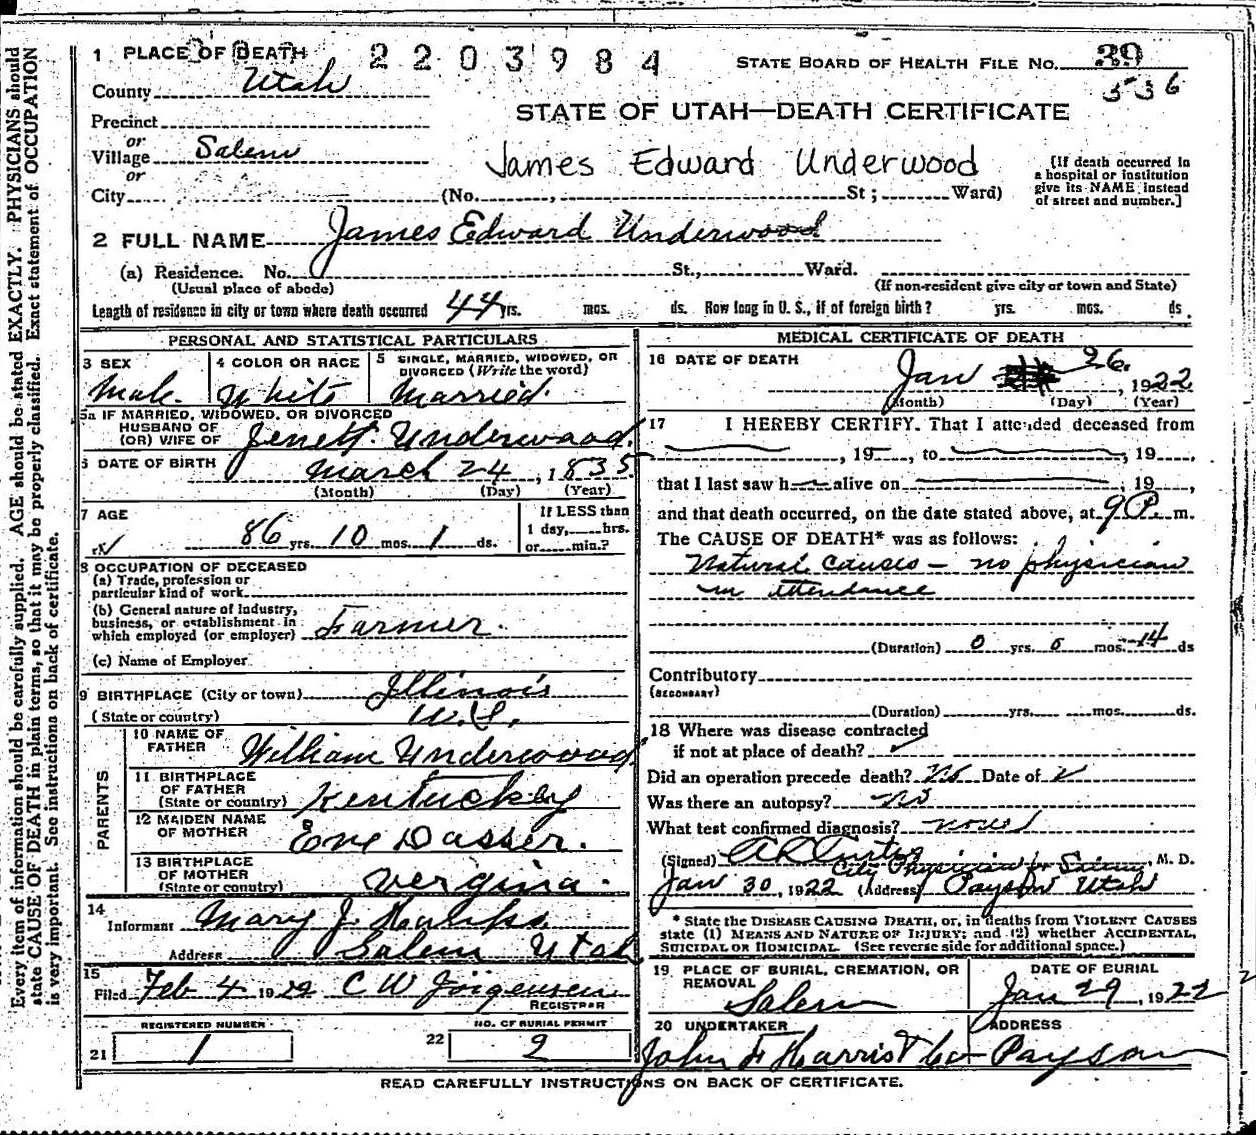 1 PLACE OF DEATH 2203984 STATE BOARD OF HEALTH FILE NO. 29
County Utah 336
STATE OF UTAH—DEATH CERTIFICATE
Precinct
or
Village Salem
or
James Edward Underwood
[If death occurred in
a hospital or institution
give its NAME instead
of street and number.]
City (No. , St ; Ward)
2 FULL NAME James Edward Underwood
(a) Residence. No. St., Ward.
(Usual place of abode) (If non-resident give city or town and State)
Length of residence in city or town where death occurred 44 yrs. mos. ds. How long in U. S., if of foreign birth? yrs. mos. ds.
PERSONAL AND STATISTICAL PARTICULARS
3 SEX 4 COLOR OR RACE 5 SINGLE, MARRIED, WIDOWED, OR
DIVORCED (Write the word)
Male. White Married.
5a IF MARRIED, WIDOWED, OR DIVORCED
HUSBAND OF
(OR) WIFE OF Jenett Underwood
6 DATE OF BIRTH March 24, 1835
(Month) (Day) (Year)
7 AGE If LESS than
1 day, hrs.
86 yrs. 10 mos. 1 ds. or min.?
8 OCCUPATION OF DECEASED
(a) Trade, profession or
particular kind of work
(b) General nature of industry,
business, or establishment in
which employed (or employer) Farmer.
(c) Name of Employer
9 BIRTHPLACE (City or town) Illinois
(State or country) U.S.
PARENTS
10 NAME OF
FATHER William Underwood
11 BIRTHPLACE
OF FATHER
(State or country) Kentuckey
12 MAIDEN NAME
OF MOTHER Eve Dasser.
13 BIRTHPLACE
OF MOTHER
(State or country) Vergina.
14
Informant Mary J.
Address Salem Utah
15
Filed Feb 4 1922 C W Jorgensen
REGISTRAR
REGISTERED NUMBER NO. OF BURIAL PERMIT
21 1 22 2
MEDICAL CERTIFICATE OF DEATH
16 DATE OF DEATH
Jan 26. , 1922
(Month) (Day) (Year)
17 I HEREBY CERTIFY. That I attended deceased from
, 19 , to , 19 ,
that I last saw h alive on , 19 ,
and that death occurred, on the date stated above, at 9 P. m.
The CAUSE OF DEATH* was as follows:
Natural Causes — no physician
in attendance
(Duration) 0 yrs. 0 mos. 14 ds
Contributory
(SECONDARY)
(Duration) yrs. mos. ds.
18 Where was disease contracted
if not at place of death?
Did an operation precede death? No Date of
Was there an autopsy? No
What test confirmed diagnosis? none
(Signed) A L Curtis , M. D.
City Physician for Salem
Jan 30, 1922 (Address) Payson Utah
* State the DISEASE CAUSING DEATH, or, in deaths from VIOLENT CAUSES
state (1) MEANS AND NATURE OF INJURY; and (2) whether ACCIDENTAL,
SUICIDAL OR HOMICIDAL. (See reverse side for additional space.)
19 PLACE OF BURIAL, CREMATION, OR DATE OF BURIAL
REMOVAL
Salem Jan 29, 1922
20 UNDERTAKER ADDRESS
John F Harris & Co Payson
READ CAREFULLY INSTRUCTIONS ON BACK OF CERTIFICATE.
Every item of information should be carefully supplied. AGE should be stated EXACTLY. PHYSICIANS should
state CAUSE OF DEATH in plain terms, so that it may be properly classified. Exact statement of OCCUPATION
is very important. See instructions on back of certificate.